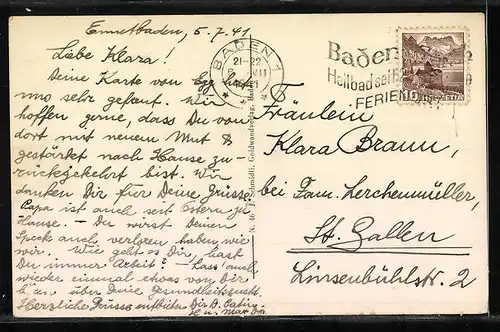 Ennetbaden, 5.7.41
Liebe Klara!
Deine Karte von
uns sehr gefreut. Wir
hoffen gerne, dass Du von
dort mit neuem Mut &
gestärkt nach Hause zu-
rückgekehrt bist. Wir
danken Dir für Deine Grüsse.
Papa ist auch seit Ostern zu
Hause. – Du wirst Deinen
Speck auch verloren haben, wie
wir. Wie geht es Dir, hast
Du immer Arbeit? – Lass auch
wieder einmal etwas von Dir
über Deine
Herzliche Grüsse entbieten Dir
BADEN 1
21-22
VII
Baden
Heilbad seit
FERIEN
10 HELVETIA
Fräulein
Klara Braun,
bei Fam. Lerchenmüller,
St. Gallen
Linsenbühlstr. 2